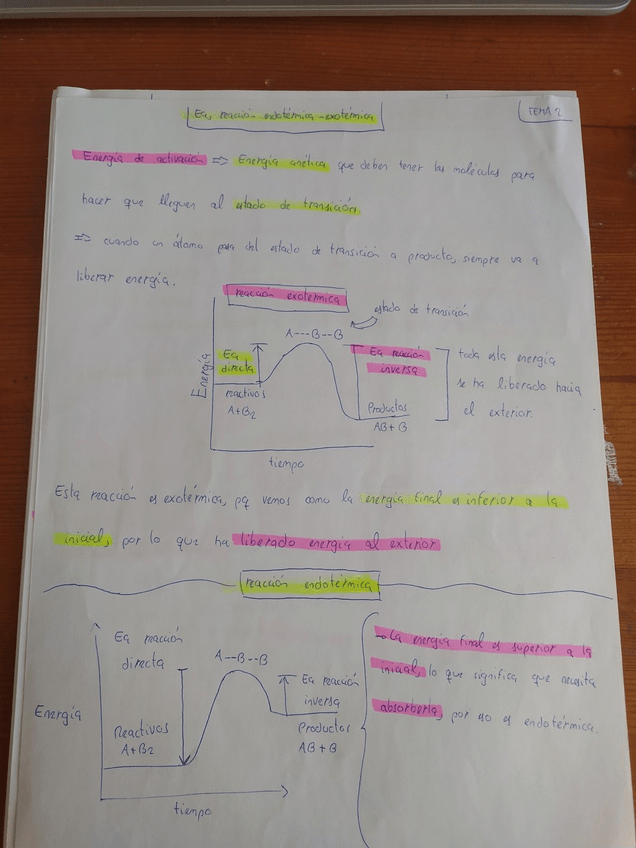 Ea, reacción endotérmica-exotérmica
TEMA 2
Energía de activación => Energía cinética que deben tener las moléculas para
hacer que lleguen al estado de transición.
=> cuando un átomo pasa del estado de transición a producto, siempre va a
liberar energía.
reacción exotérmica
estado de transición
A---B--B
Ea
directa
Energía
reactivos
A+B2
Ea reacción
inversa
Productos
AB+B
toda esta energía
se ha liberado hacia
el exterior.
tiempo
Esta reacción es exotérmica, pq vemos como la energía final es inferior a la
inicial, por lo que ha liberado energía al exterior
reacción endotérmica
Ea reacción
directa
A--B--B
Ea reacción
inversa
Energía
Reactivos
A+B2
Productos
AB+B
tiempo
-La energía final es superior a la
inicial, lo que significa que necesita
absorberla, por eso es endotérmica.